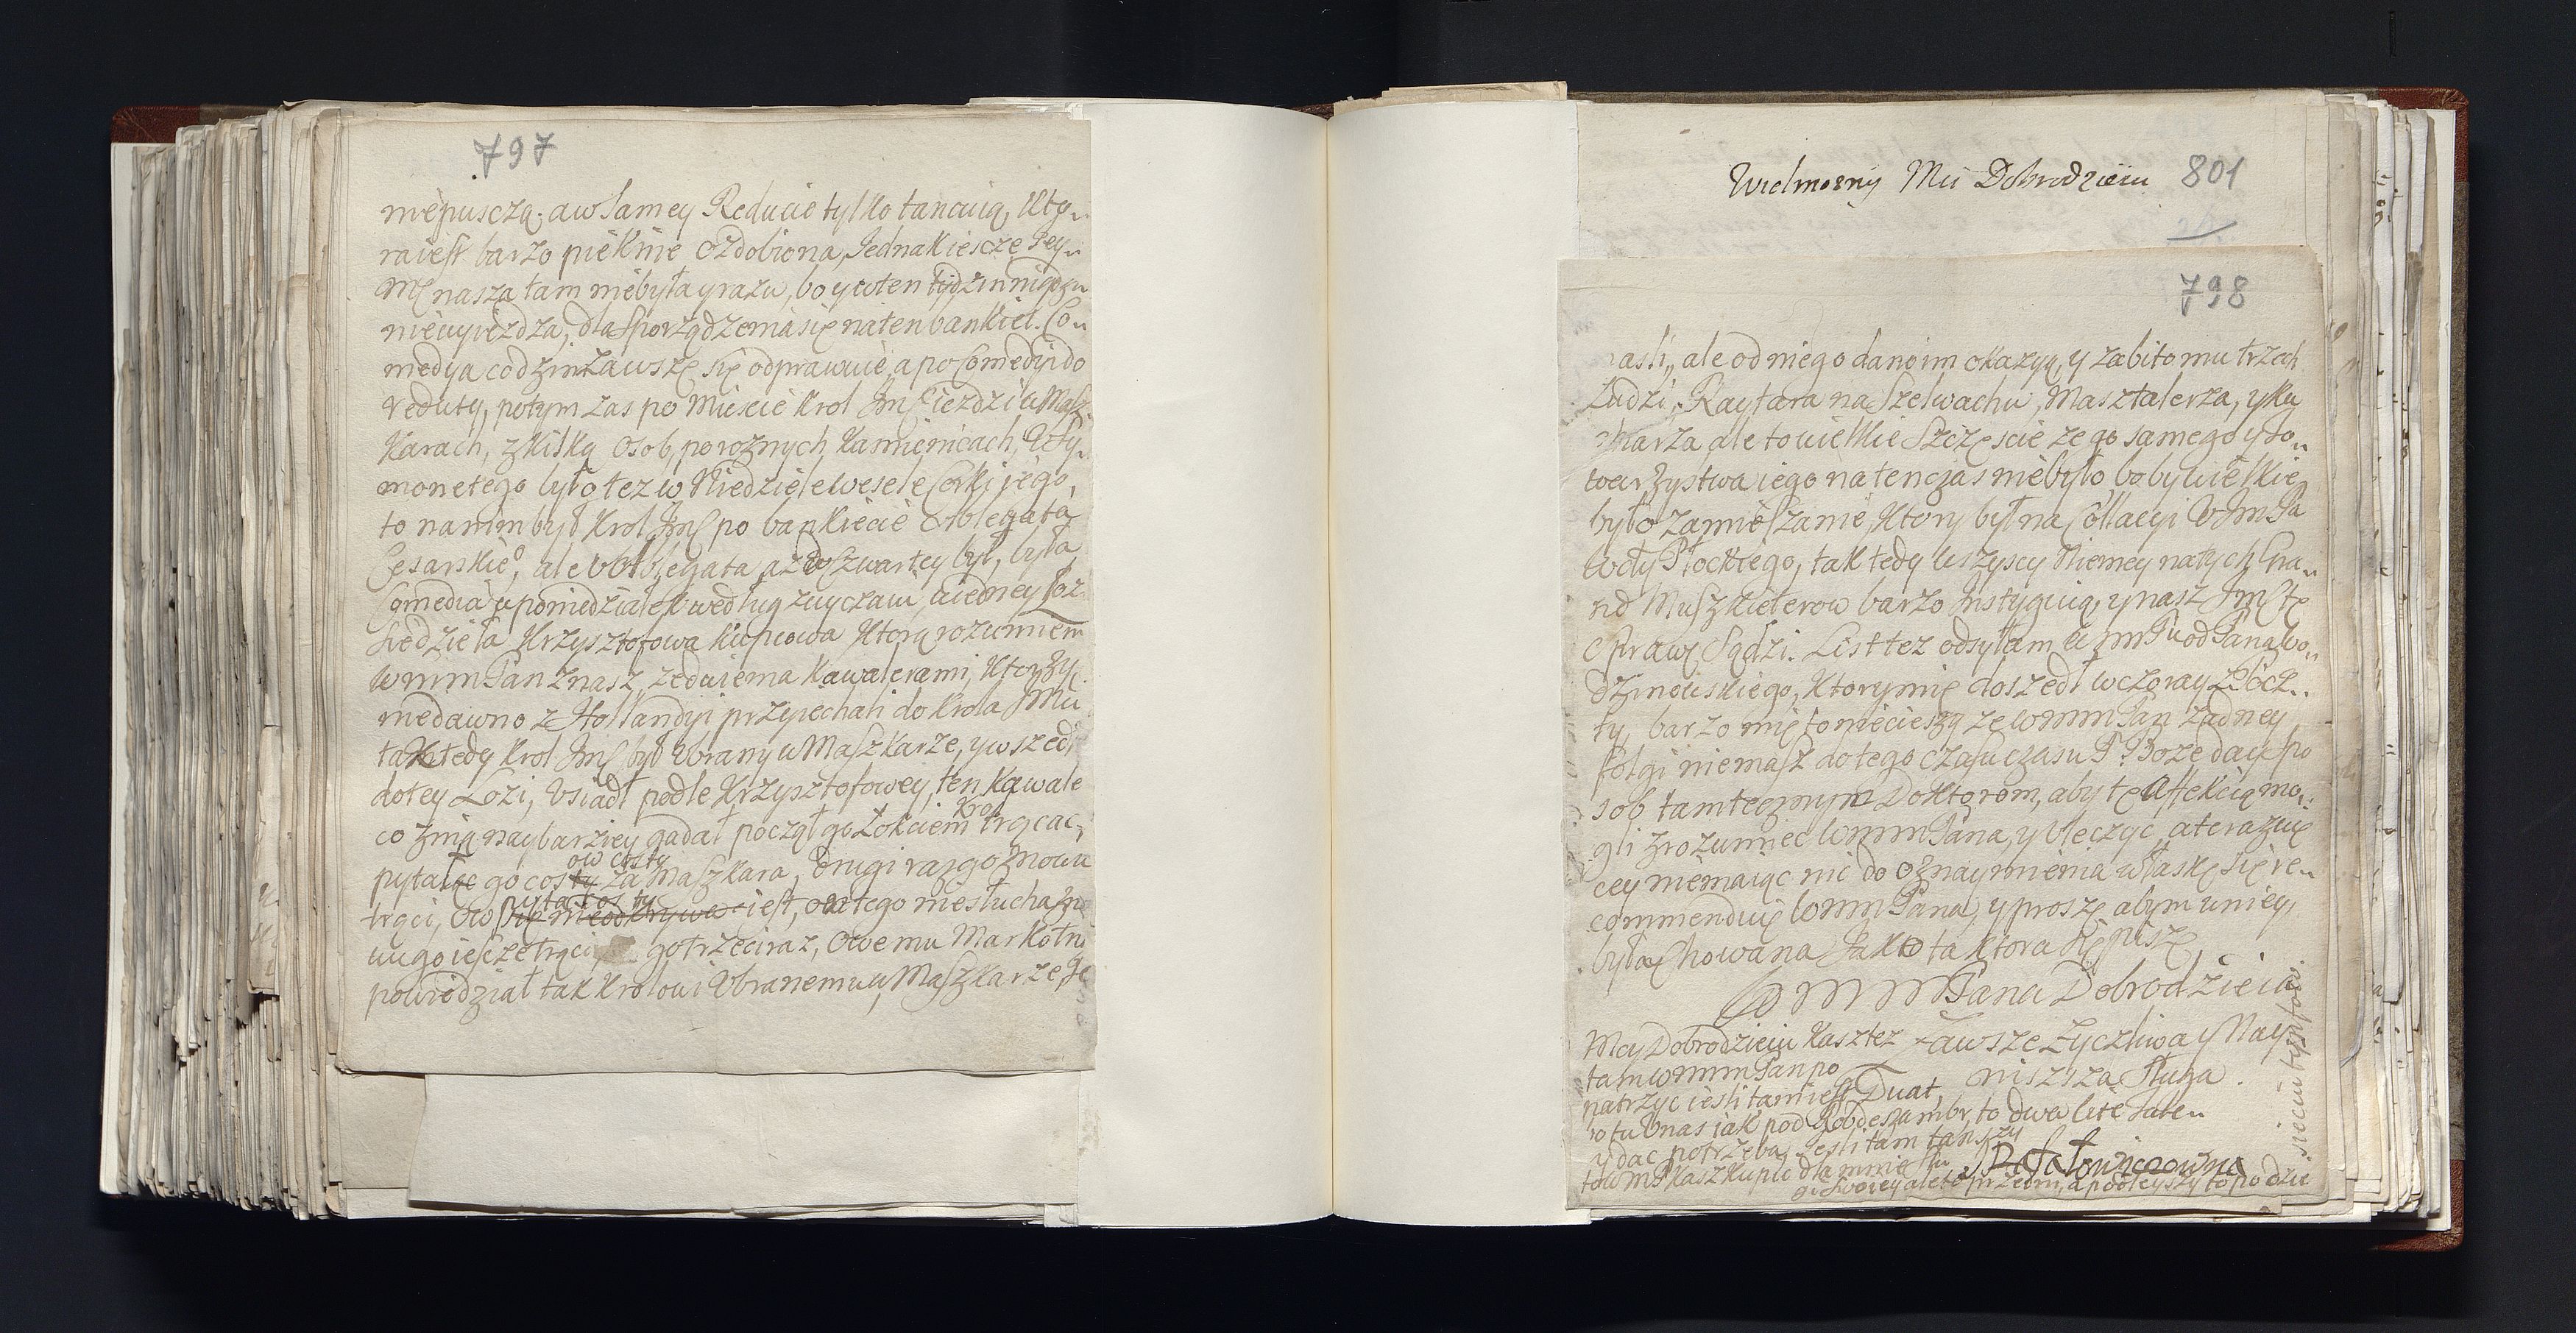 797
niepuscżą. aw samey Reducie tylko tancuią, Kto„
raiest barzo pieknie ożdobiona, Jednak iescze Pey„
nasza tam niebyła yrazu, bo y wten tydzin nigdzu
niewyiezdza, dla sporządzenia się naten bankiet. Co„
medya codzin zawszę się odprawuie, a po Comedyi do
reduty, potym zas po Miescie Krol Jmć iezdzi w Masz„
Karach, z kilką osob, po roznych Kamięnicach, U Sy„
monetego było też w Niedziele wesele Corki jego,
to na nim był Krol Jmć po bankiecie U oblegata
Cesarskie°, ale U oblegata aż do czwartey był, była
Comedia w poniedziałek według zwyczaiu, wiedney Loż.
siedziała Krzysztofowa Kupcowa Ktorą rozumiem
wmm Pan znasz, zedwiema Kawalerami, Ktorzy
niedawno z Hollandyi przyiechali do Krola Jmci
tak tedy Krol Jmć był Ubrany w Maszkarze, y wszedł
do tey Loźi, Usiadł podle Krzysztofowey, ten Kawale
co znią naybarziey gadał począł go Łokciem Krol trącac,
pytaiąc go cos ty ow cos ty za Maszkara, drugi raz go znowu
trąci, ow się nieodkrywa pyta cos ty iest, on tego niesłucha zn
uu go iescze trąci go trzeci raz, owemu Markotni
powiedział tak Krolowi Ubranemu w Maszkarze, Je
Wielmożny Mci Dobrodzieiu 801
798
rasli„ ale od niego dano im okazyą, y zabito mu trzech
Ludzi, Raytara na Szelwachu, Masztalerza, y Ku
charza ale to wielkie Szczęscie ze go samego y To„
warzystwa iego natenczas niebyło boby wielkie
było zamieszanie, Ktory był na Collacyi U Jm Pa
Wdy Płockiego, tak tedy wszyscy Niemcy na tych Gra„
nd Muszkieterow barzo Instyguią, y nasz Jmć tę
sprawę sądzi. List tez odsyłam w mm Pu od Pana Wo„
dzinowskiego, Ktory mię doszedł wczoray z Pocz„
ty, barzo mię to niecieszy ze wmm Pan żadney
folgi niemasz do tego czasu czasu P: Boze day spo
sob tamtecznym Doktorom, aby tę Affekcią mo„
gli zrozumiec wmm Pana, y Uleczyc, a teraz wię
cey niemaiąc nic do oznaymienia w łaskę się re„
commenduię wmm Pana, y proszę abym w niey,
była chowana Jako ta ktora się piszę
Wmm Pana Dobrodzieia
Zawsze Zyczliwa y Nay
niszsza Sługa.
Moy Dobrodzieiu Kasztez
tam wmm Pan po
patrzyc iesli tam iest Duat,
bo tu Unas iak pod Robdeszambr, to dwa lete Tale„
y dac potrzeba, Jesli tam tanszy
to wm P kasz kupic dla mnie
JRafałowiczowna